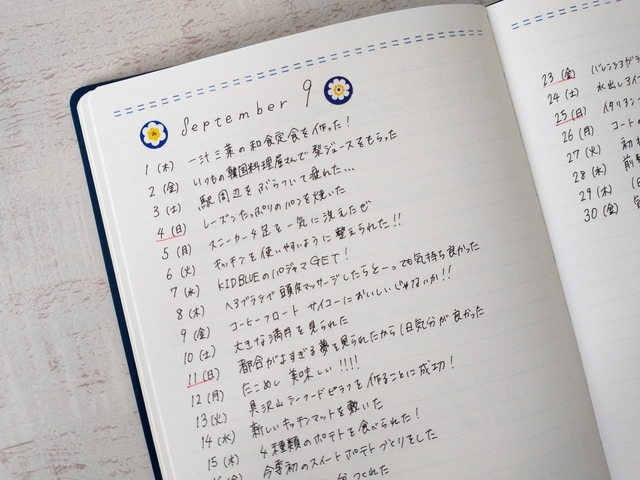 September 9
1(木) 一汁三菜の和食定食を作った！
2(金) いつもの韓国料理屋さんで梨ジュースをもらった
3(土) 駅周辺をぶらついて疲れた...
4(日) レーズンたっぷりのパンを焼いた
5(月) スニーカー4足を一気に洗えたぜ
6(火) キッチンを使いやすいように整えられた!!
7(水) KID BLUEのパジャマGET!
8(木) ヘアブラシで頭皮マッサージしたらと〜っても気持ち良かった
9(金) コーヒーフロート サイコーにおいしいじゃないか!!
10(土) 大きな満月を見られた
11(日) 都合がよすぎる夢を見られたから1日気分が良かった
12(月) たこめし 美味しい!!!!
13(火) 具沢山シーフードピラフを作ることに成功！
14(水) 新しいキッチンマットを敷いた
15(木) 4種類のポテトを食べられた！
今季初のスイートポテトづくりをした
23(金)
24(土) 水出し
25(日) イタリアン
26(月) コートの
27(火)
28(水)
29(木)
30(金)